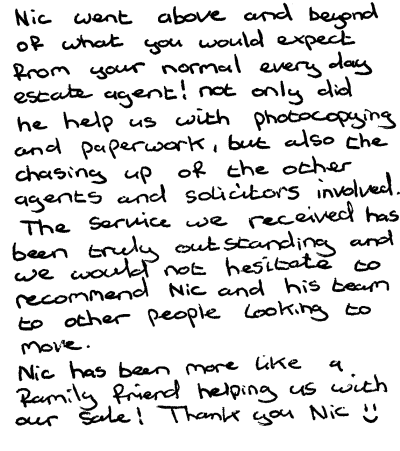 Nic went above and beyond
of what you would expect
from your normal every day
estate agent! not only did
he help us with photocopying
and paperwork, but also the
chasing up of the other
agents and solicitors involved.
The service we received has
been truly outstanding and
we would not hesitate to
recommend Nic and his team
to other people looking to
move.
Nic has been more like a
family friend helping us with
our sale! Thank you Nic :)